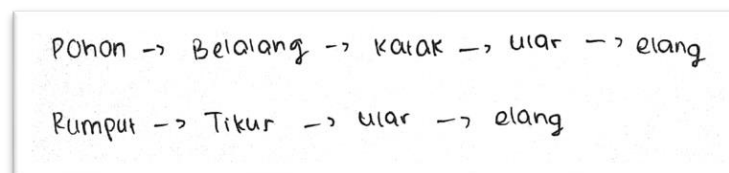 Pohon -> Belalang -> Katak -> ular -> elang
Rumput -> Tikur -> ular -> elang